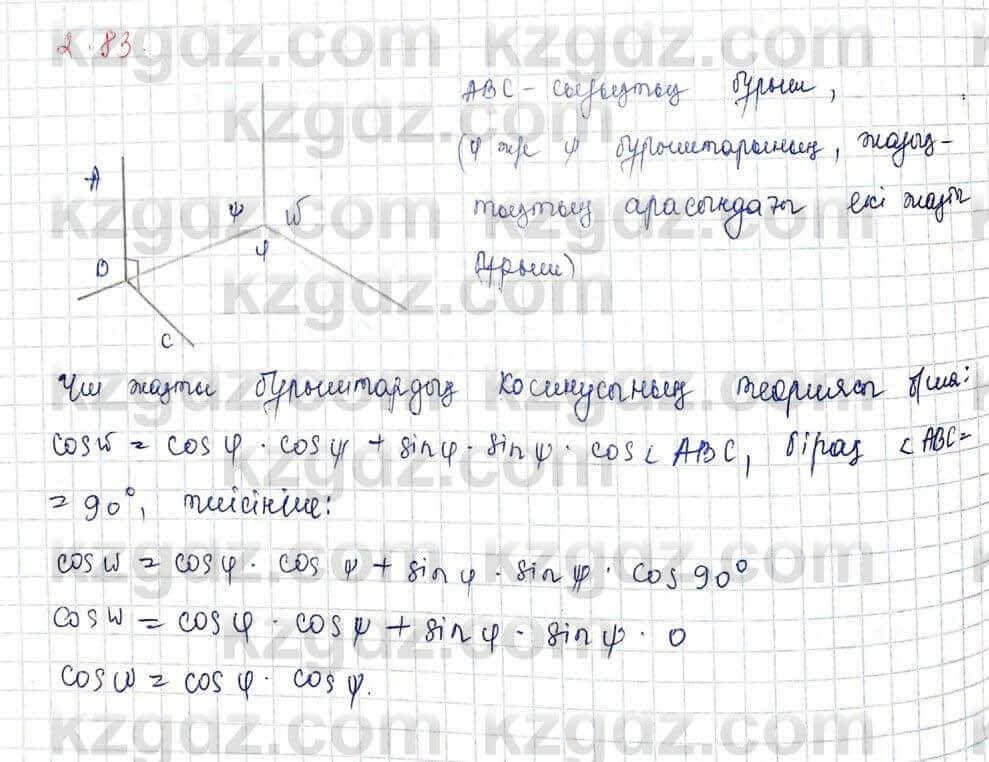 2.83.
ABC - сызықтық бұрыш,
(φ және ψ бұрыштарының, жазық-
A
тықтың арасындағы екі жақты
ψ ω
φ
B
бұрыш)
C
Үш жақты бұрыштардың косинусының теориясы б/ша:
cos ω = cos φ · cos ψ + sin φ · sin ψ · cos < ABC, бірақ < ABC =
= 90°, тиісінше:
cos ω = cos φ · cos ψ + sin φ · sin ψ · cos 90°
cos ω = cos φ · cos ψ + sin φ · sin ψ · 0
cos ω = cos φ · cos ψ.
kzgdz.com